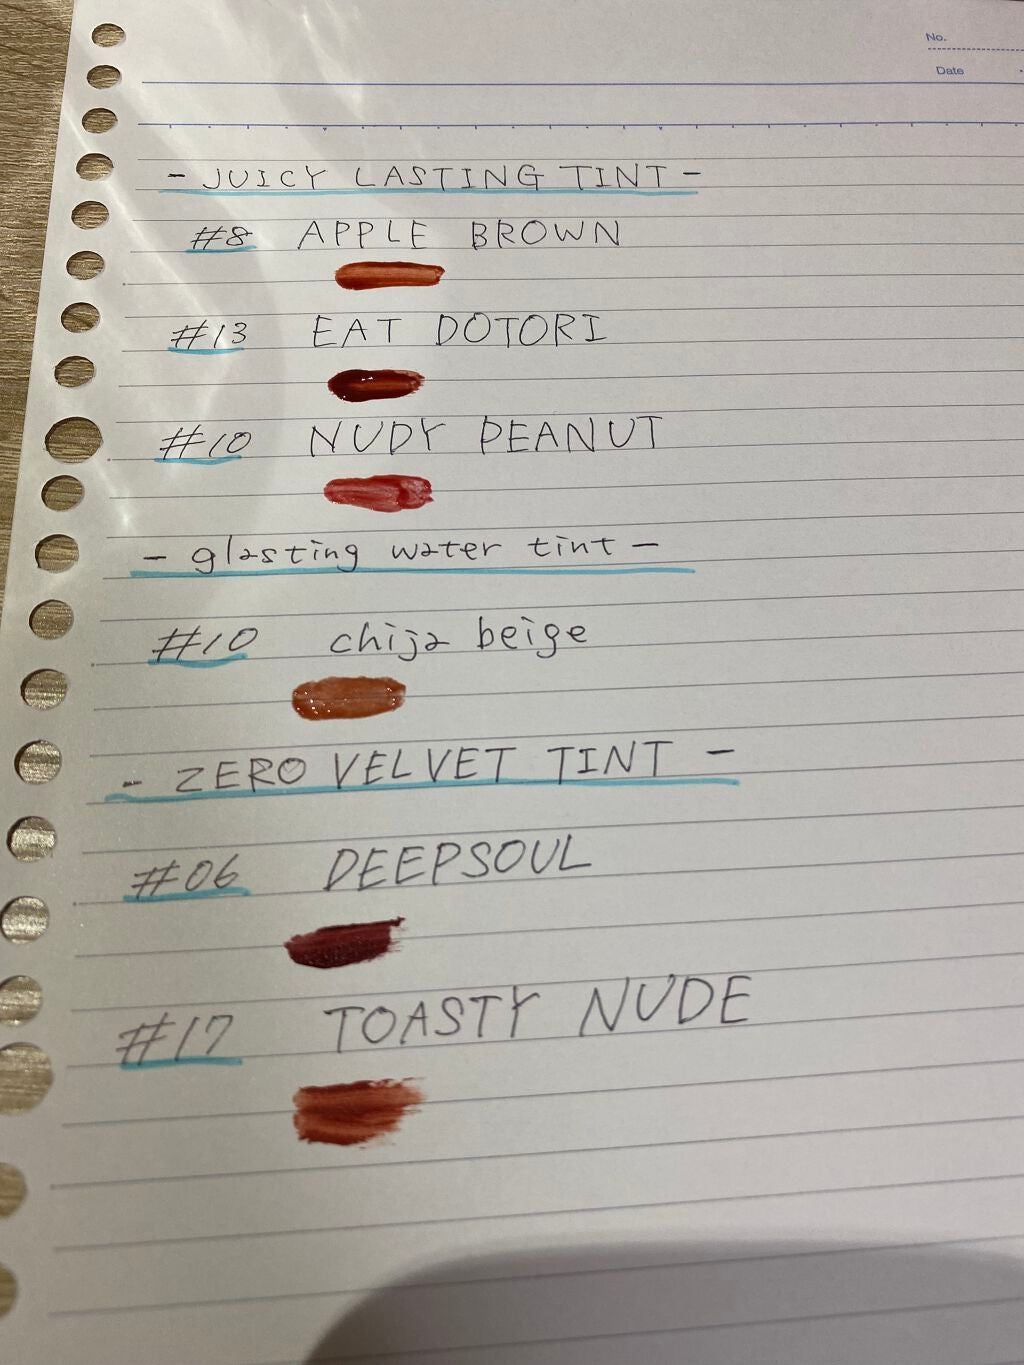 No.
Date
- JUICY LASTING TINT -
#8 APPLE BROWN
#13 EAT DOTORI
#10 NUDY PEANUT
- glasting water tint -
#10 chija beige
- ZERO VELVET TINT -
#06 DEEPSOUL
#17 TOASTY NUDE